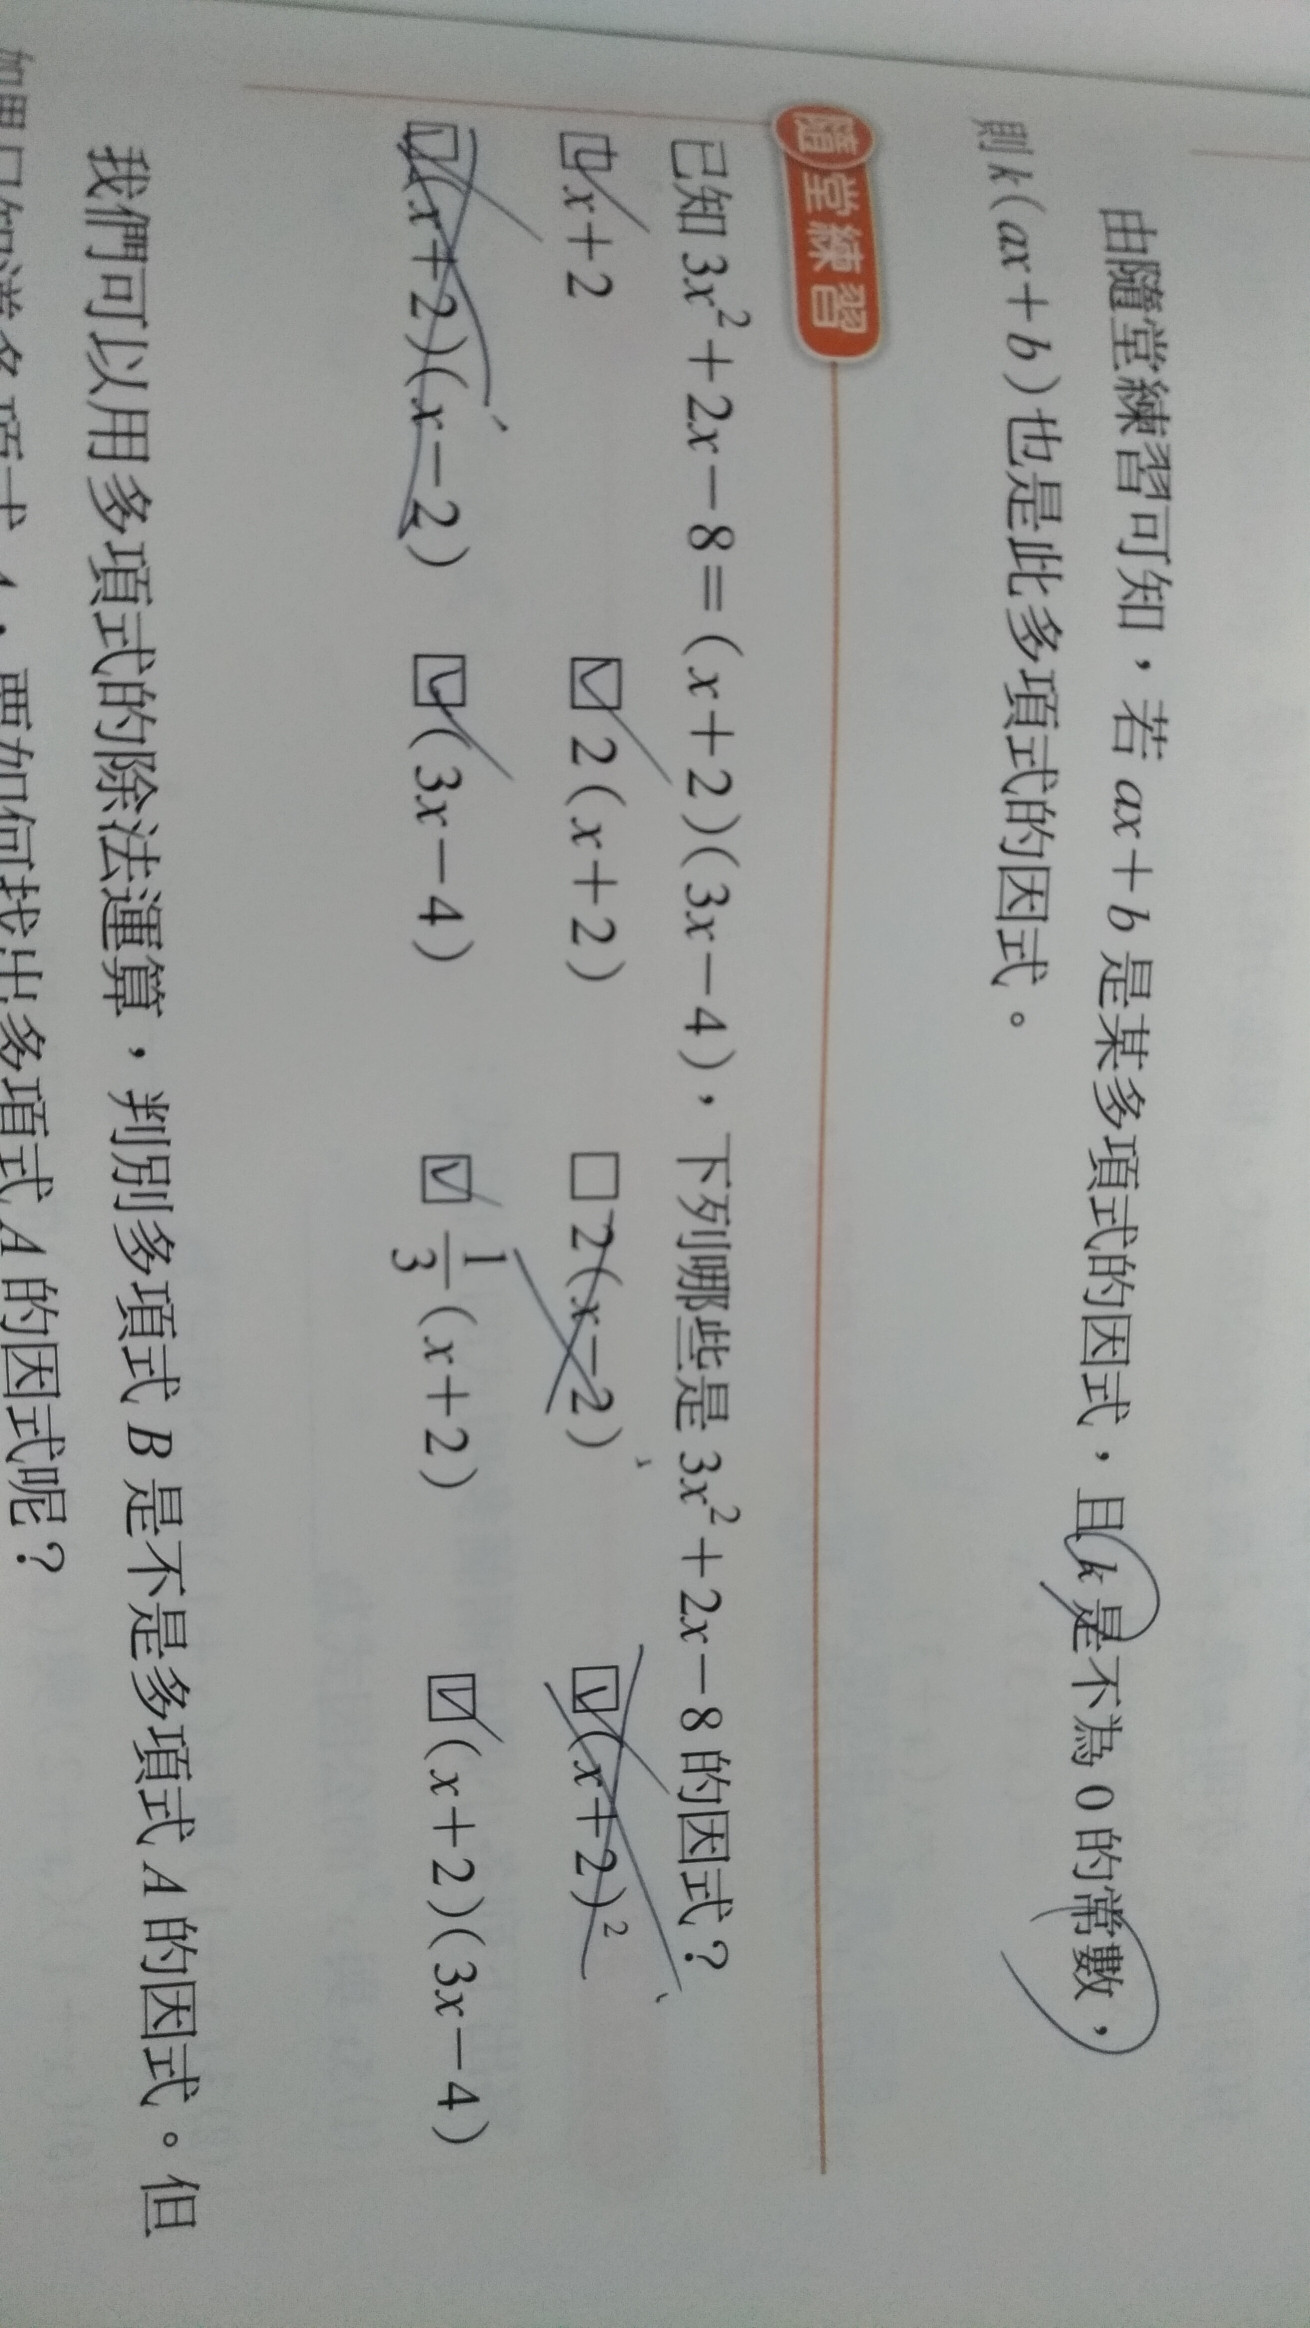 由隨堂練習可知，若 ax＋b 是某多項式的因式，且 k 是不為 0 的常數，
則 k（ax＋b）也是此多項式的因式。
隨堂練習
已知 3x²＋2x－8＝（x＋2）（3x－4），下列哪些是 3x²＋2x－8 的因式？
☑ x＋2 ☑ 2（x＋2） □ 2（x－2） ☑（x＋2）²
☑（x＋2）（x－2） ☑（3x－4） ☑ 1/3（x＋2） ☑（x＋2）（3x－4）
我們可以用多項式的除法運算，判別多項式 B 是不是多項式 A 的因式。但
如果只知道多項式 A，要如何找出多項式 A 的因式呢？